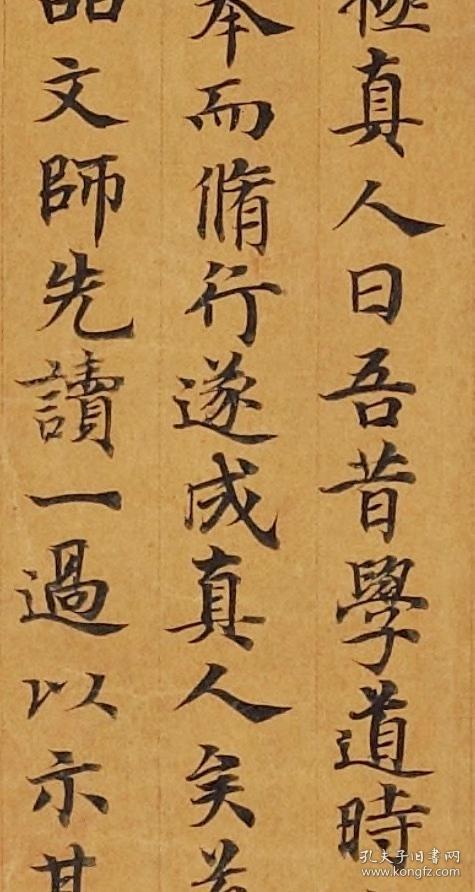 極真人曰吾昔學道時
奉而脩行遂成真人矣若
品文師先讀一過以示其
孔夫子旧书网
www.kongfz.com